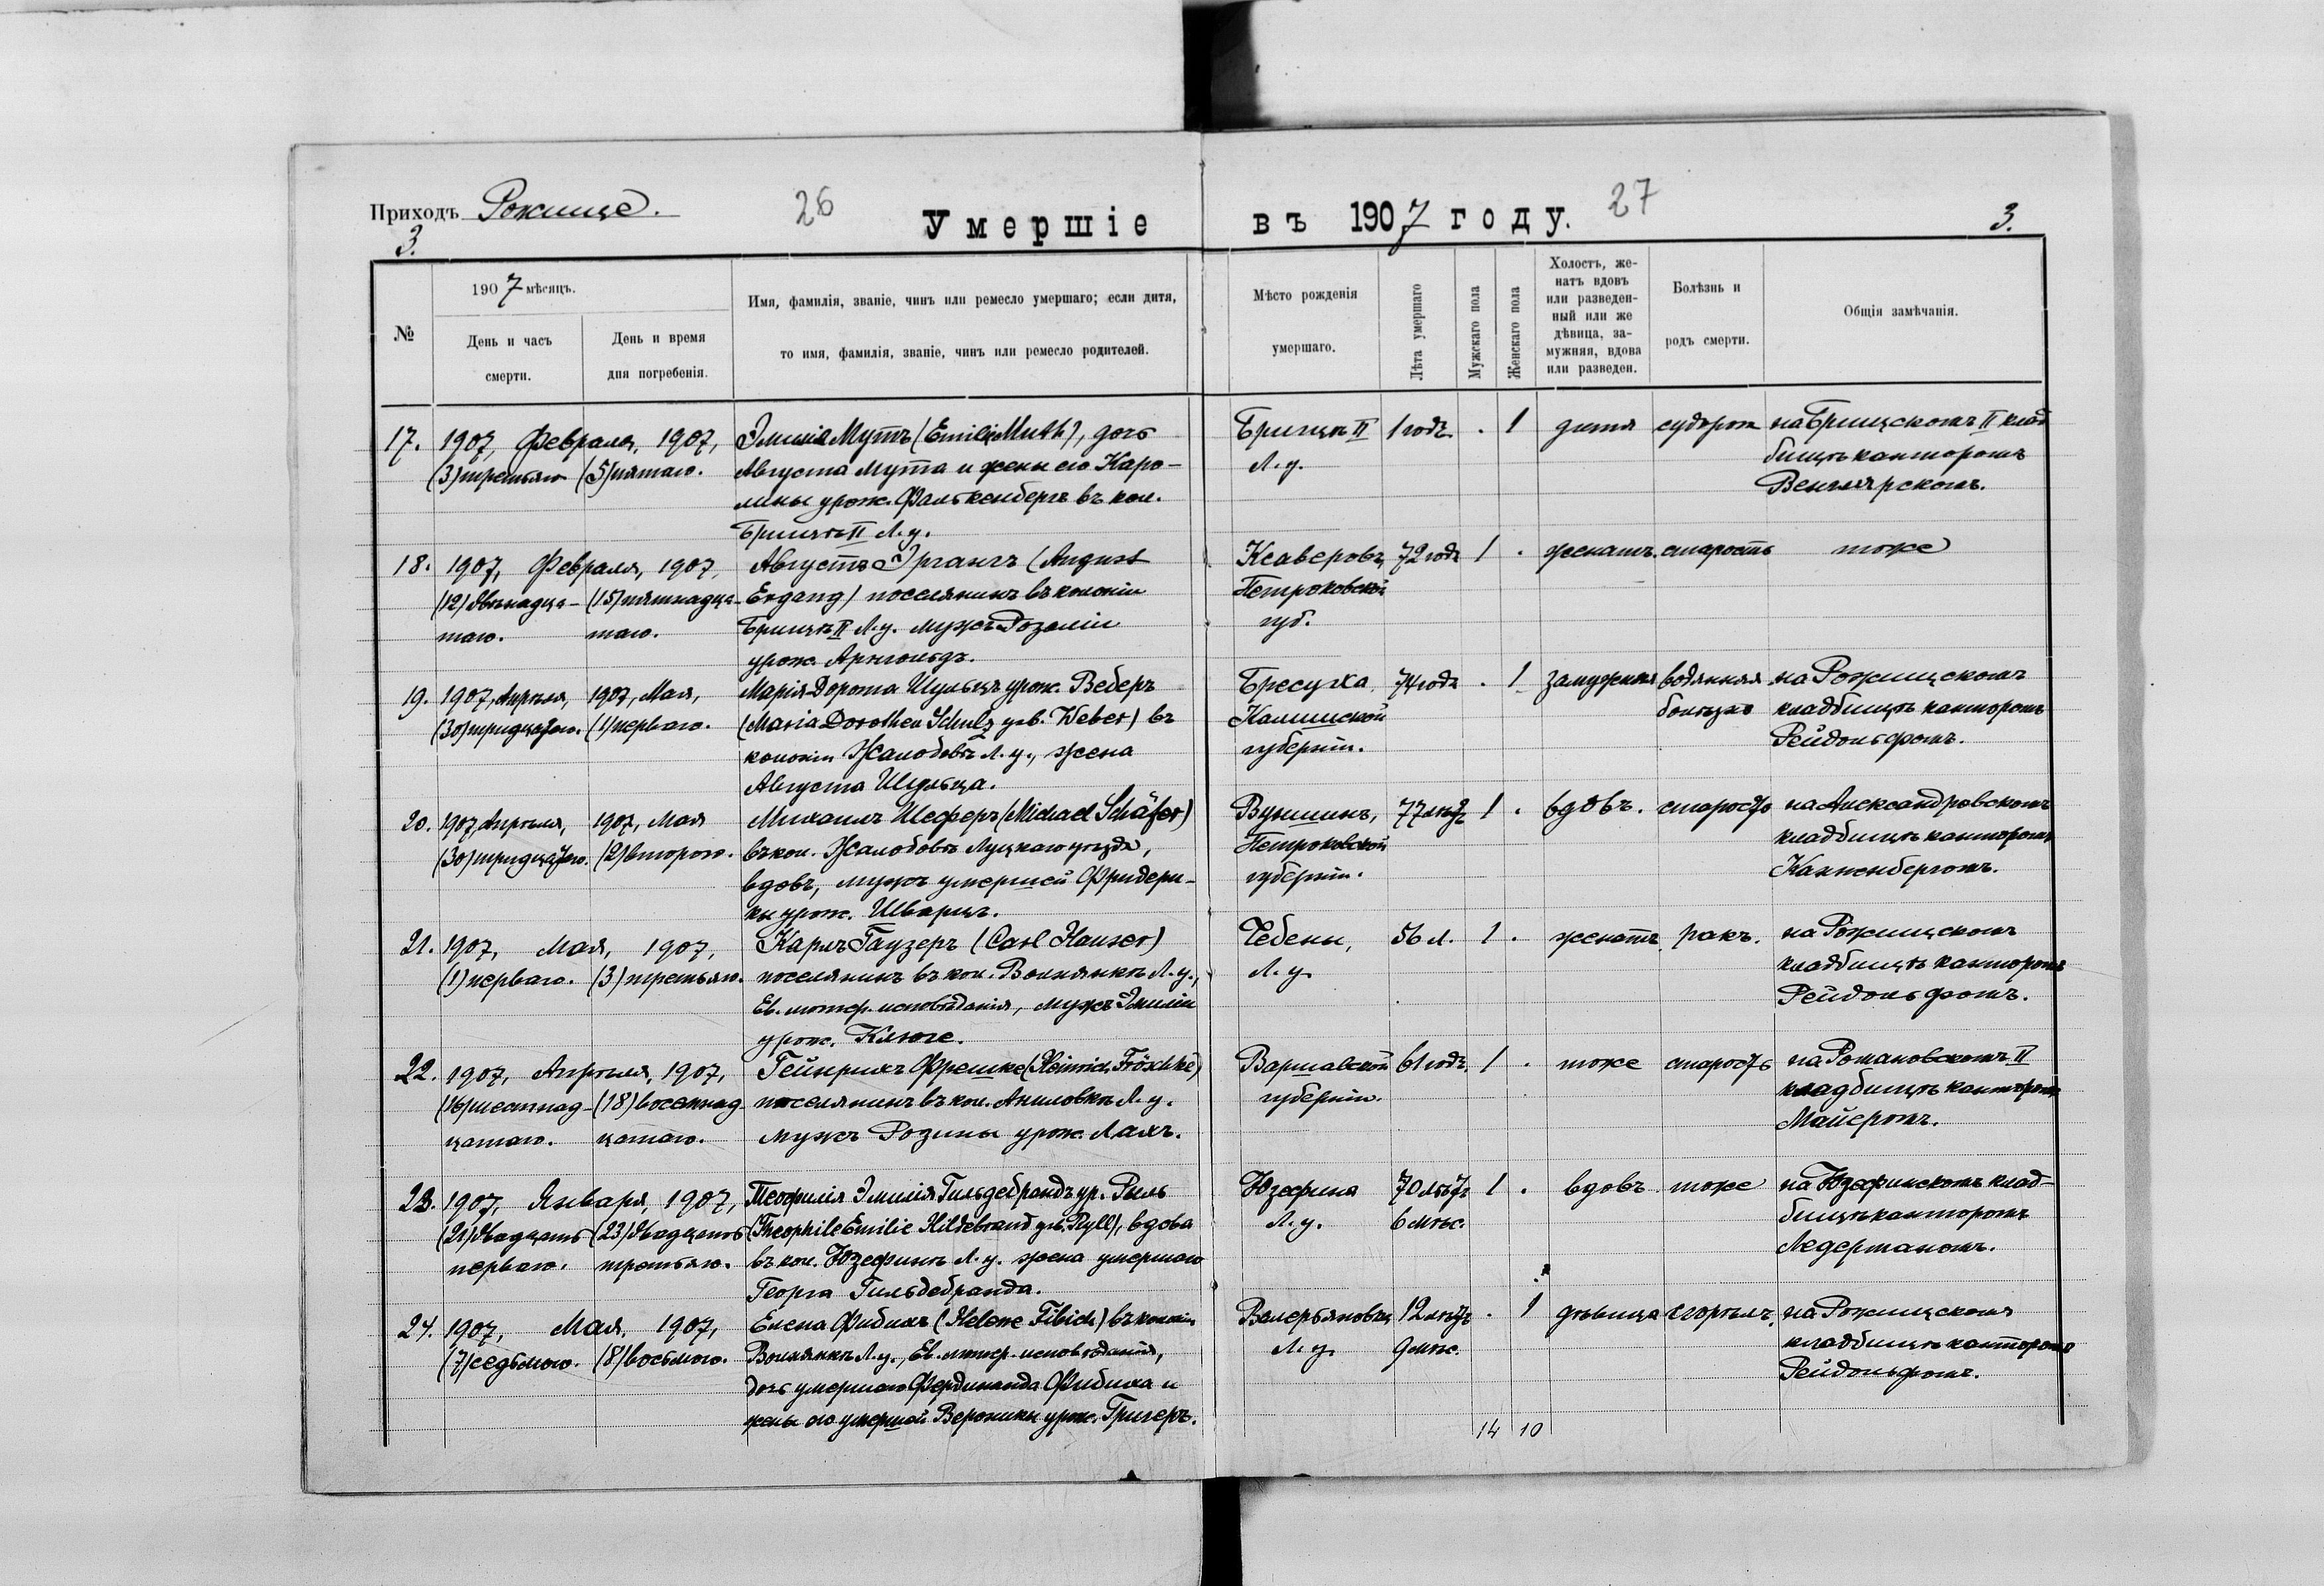 Приходъ Рожище.
26
Умершіе
въ 1907 году.
27
3.
3.
№
1907 мѣсяцъ.
День и часъ смерти.
День и время дня погребенія.
Имя, фамилія, званіе, чинъ или ремесло умершаго; если дитя,
то имя, фамилія, званіе, чинъ или ремесло родителей.
Мѣсто рожденія
умершаго.
Лѣта умершаго
Мужскаго пола
Женскаго пола
Холостъ, же-
натъ вдовъ
или разведен-
ный или же
дѣвица, за-
мужняя, вдова
или разведен.
Болѣзнь и
родъ смерти.
Общія замѣчанія.
17. 1907, Февраля, 1907, Эмилія Мутъ (Emilie Muth), дочь Брищи II 1 годъ . 1 дитя судорож на Брищскомъ II клад
(3) третьяго (5) пятаго. Августа Мута и жены его Каро- Л. у. бищѣ канторомъ
лины урож. Фалькенбергъ въ кол. Венглярскомъ.
Брищѣ II Л. у.
18. 1907, Февраля, 1907, Августъ Эргангъ (August Ксаверовъ, 72 года 1 . женатъ. старость тоже
(12) двѣнадца- (15) пятнадца- Ergang) поселянинъ въ колоніи Петроковской
таго. таго. Брищѣ II Л. у. мужъ Розаліи губ.
урож. Арнгольдъ.
19. 1907, Апрѣля, 1907, Мая, Марія Дорота Шульцъ урож. Веберъ 74 года . 1 замужняя водянная на Рожищскомъ
(30) тридцатаго. (1) перваго. (Maria Dorothea Schulz geb. Weber) въ Калишской кладбищѣ канторомъ
колоніи Жалобовъ Л. у., жена губерніи. Рейдольфомъ.
Августа Шульца.
20. 1907, Апрѣля, 1907, Мая Михаилъ Шеферъ (Michael Schäfer) 77 лѣтъ 1 . вдовъ. старость на Александровскомъ
(30) тридцатаго. (2) второго. въ кол. Жалобовъ Луцкаго уѣзда, Петроковской кладбищѣ канторомъ
вдовъ, мужъ умершей Фридери- губерніи. Канненбергомъ.
ки урож. Шварцъ.
21. 1907, Мая, 1907, Карлъ Гаузеръ (Carl Hauser) Чебени, 56 л. 1 . женатъ. ракъ. на Рожищскомъ
(1) перваго. (3) третьяго. поселянинъ въ кол. Волнянкѣ Л. у., Л. у. кладбищѣ канторомъ
Ев. лютер. исповѣданія, мужъ Эмиліи Рейдольфомъ.
урож. Клюге.
22. 1907, Апрѣля, 1907, Гейнрихъ Фрешке (Heinrich Fröschke) Варшавской 61 годъ. 1 . тоже старость на Романовскомъ II
(16) шестнад- (18) восемнад- поселянинъ въ кол. Аниловкѣ Л. у. губерніи. кладбищѣ канторомъ
цатаго. цатаго. мужъ Розины урож. Лахъ. Майеромъ.
23. 1907, Января, 1907, Теофилія Эмилія Гильдебрандъ ур. Рыль Юзефина 70 лѣтъ 1 . вдовъ тоже на Юзефинскомъ клад-
(21) двадцать (23) двадцать (Theophile Emilie Hildebrand geb. Ryll), вдова Л. у. 6 мѣс. бищѣ канторомъ
перваго. третьяго. въ кол. Юзефинѣ Л. у. жена умершаго Ледерманомъ.
Георга Гильдебранда.
24. 1907, Мая, 1907, Елена Фибихъ (Helene Fibich) въ колоніи Валерьяновка 12 лѣтъ . 1 дѣвица на Рожищскомъ
(7) седьмого. (8) восьмого. Волнянкѣ Л. у., Ев. лютер. исповѣданія, Л. у. 9 мѣс. кладбищѣ канторомъ
дочь умершаго Фердинанда Фибиха и Рейдольфомъ.
жены его умершей Вероники урож. Григеръ.
14 10